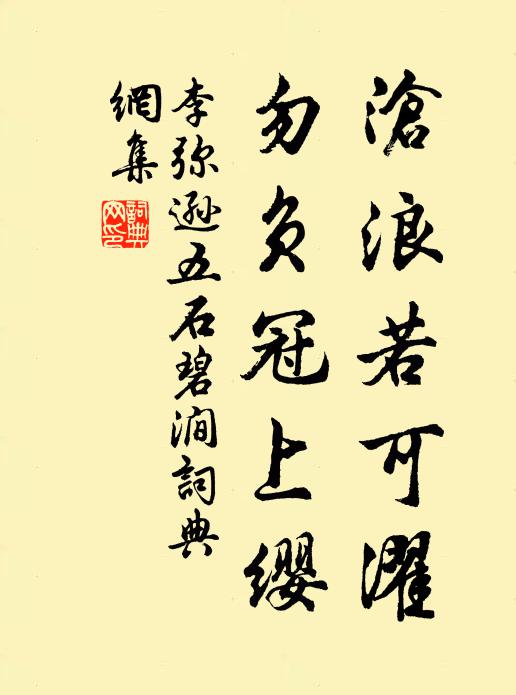 滄浪若可濯
勿負冠上纓
李弥遜五石碧澗詞典
網集
詞典
网印